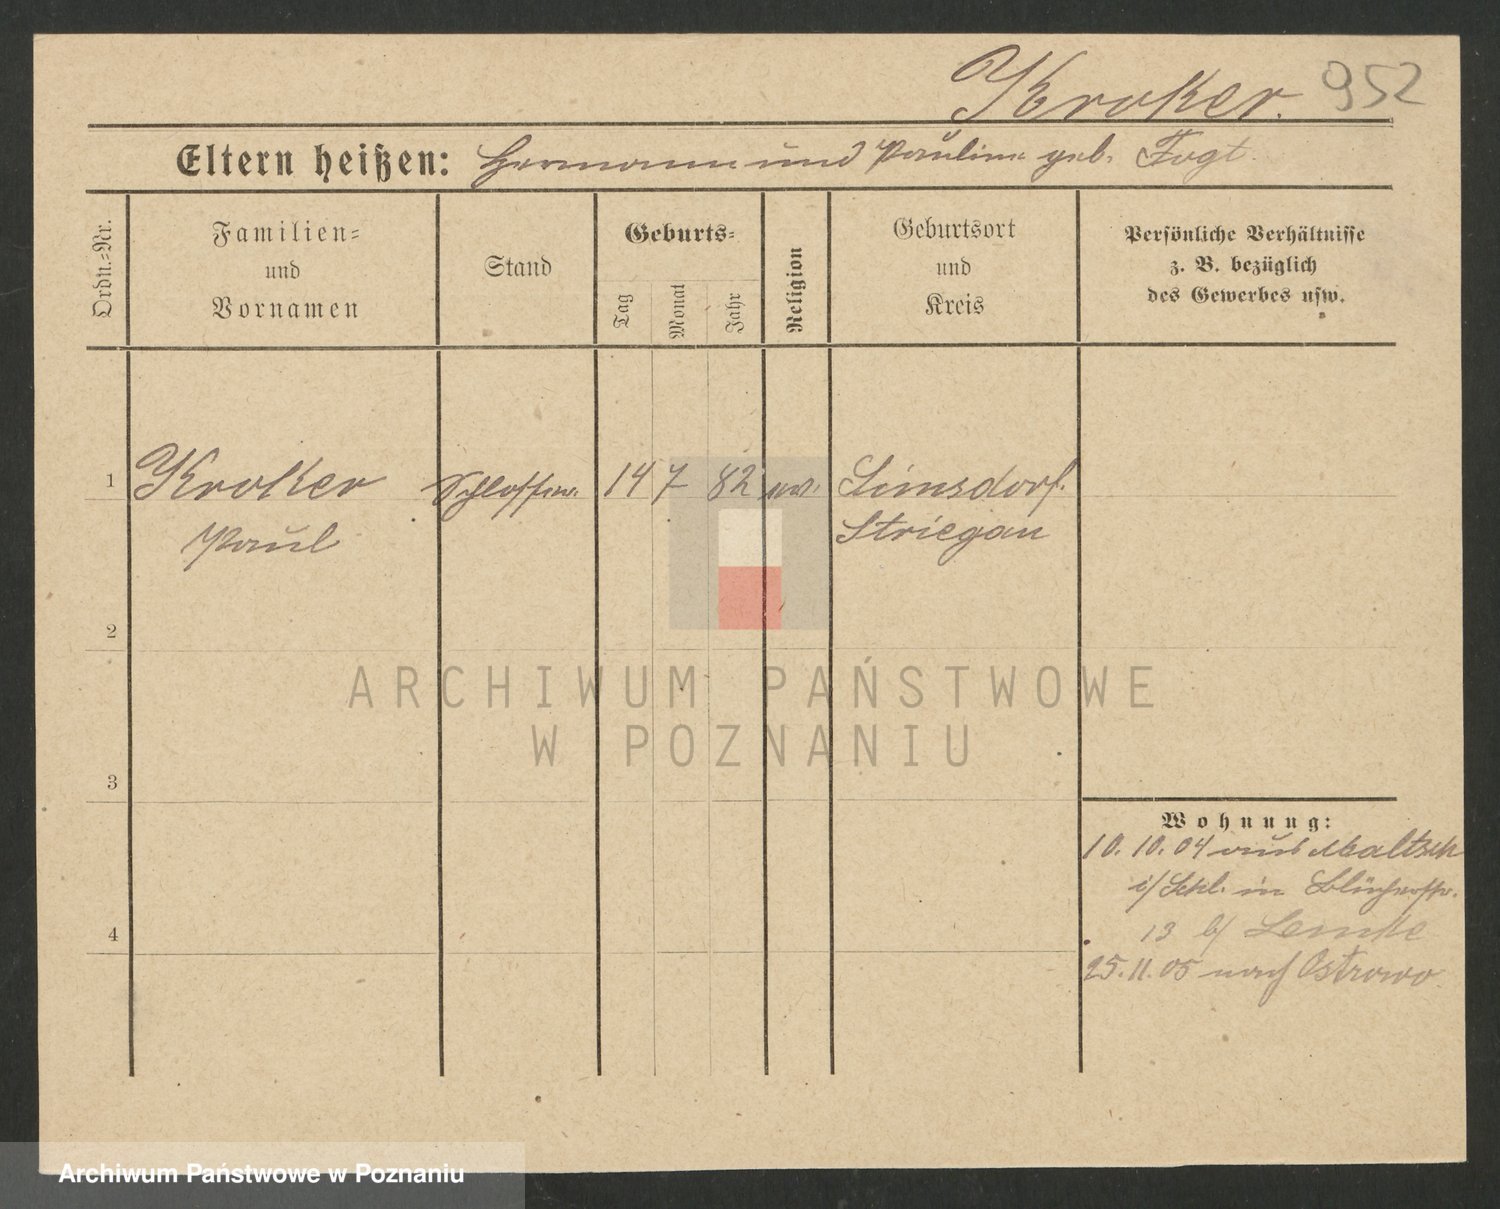 Kroker. 952
Eltern heißen: Hermann und Pauline geb. Fogt.
Ordn.-Nr.
Familien=
und
Vornamen
Stand
Geburts=
Tag
Monat
Jahr
Religion
Geburtsort
und
Kreis
Persönliche Verhältnisse
z. B. bezüglich
des Gewerbes usw.
1 Kroker Schlosser 14 7 82 ev. Simsdorf.
Paul Striegau
2
3
4
Wohnung:
10. 10. 04 aus Maltsch
i/ Schl. in Blücherstr.
13 b/ Lemke
25. 11. 05 nach Ostrowo
ARCHIWUM PAŃSTWOWE
W POZNANIU
Archiwum Państwowe w Poznaniu